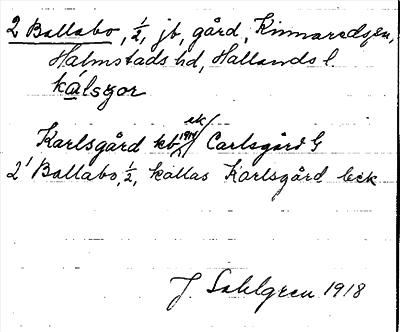 2 Ballabo, ½, jb, gård, Kinnareds sn,
Halmstads hd, Hallands l.
kálsgor
ek
Karlsgård kb 1914 / Carlsgård G
2' Ballabo, ½, kallas Karlsgård bck
J. Sahlgren 1918